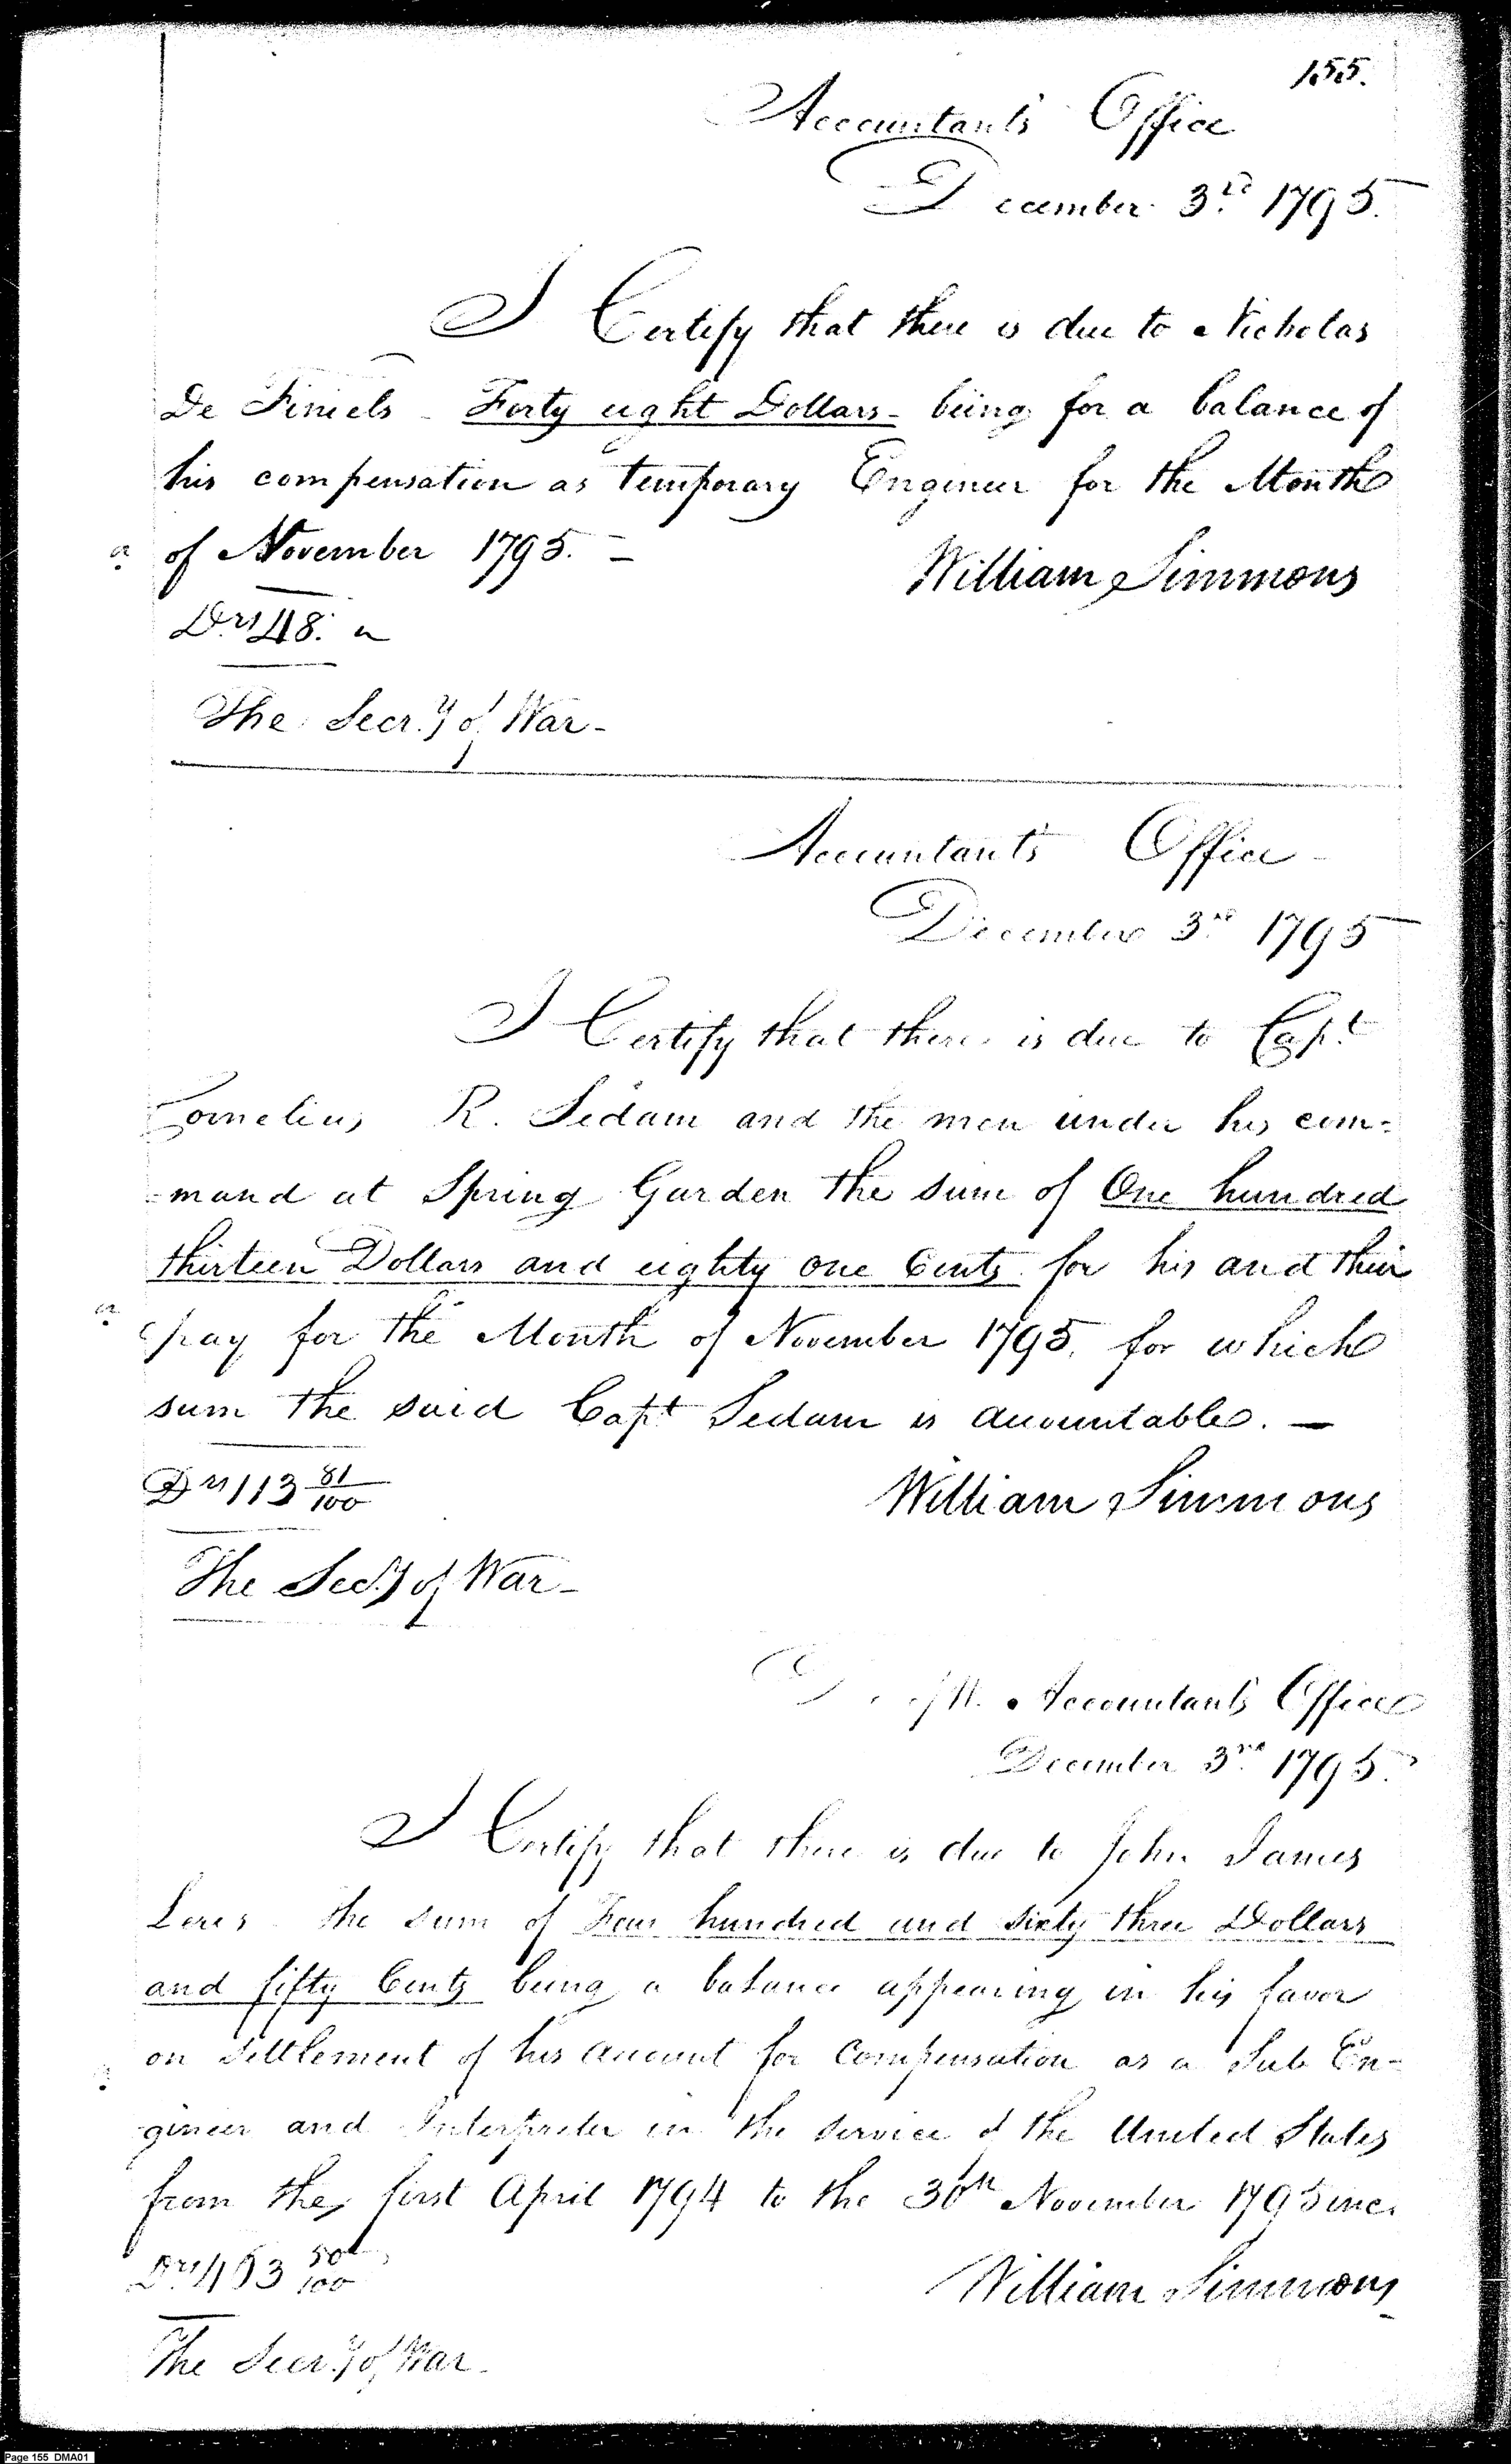 155.
Accountants Office
December 3rd 1795.
I Certify that there is due to Nicholas
De Finiels - Forty eight Dollars - being for a balance of
his compensation as temporary Engineer for the Month
of November 1795. -
William Simmons
Drs 48.
The Secry of War -
Accountants Office -
December 3rd 1795
I Certify that there is due to Capt
Cornelius R. Sedam and the men under his com=
=mand at Spring Garden the sum of One hundred
thirteen Dollars and eighty one Cents for his and their
pay for the Month of November 1795. for which
sum the said Capt Sedam is accountable. -
Drs 113 81/100
William Simmons
The Secy of War -
Accountants Office
December 3rd 1795.
I Certify that there is due to John James
the sum of Four hundred and sixty three Dollars
and fifty Cents being a balance appearing in his favor
on settlement of his account for Compensation as a Sub En-
gineer and Interpreter in the service of the United States
from the first April 1794 to the 30th November 1795 inc.
Drs 463 50/100
William Simmons
The Secry of War -
Page 155 DMA01